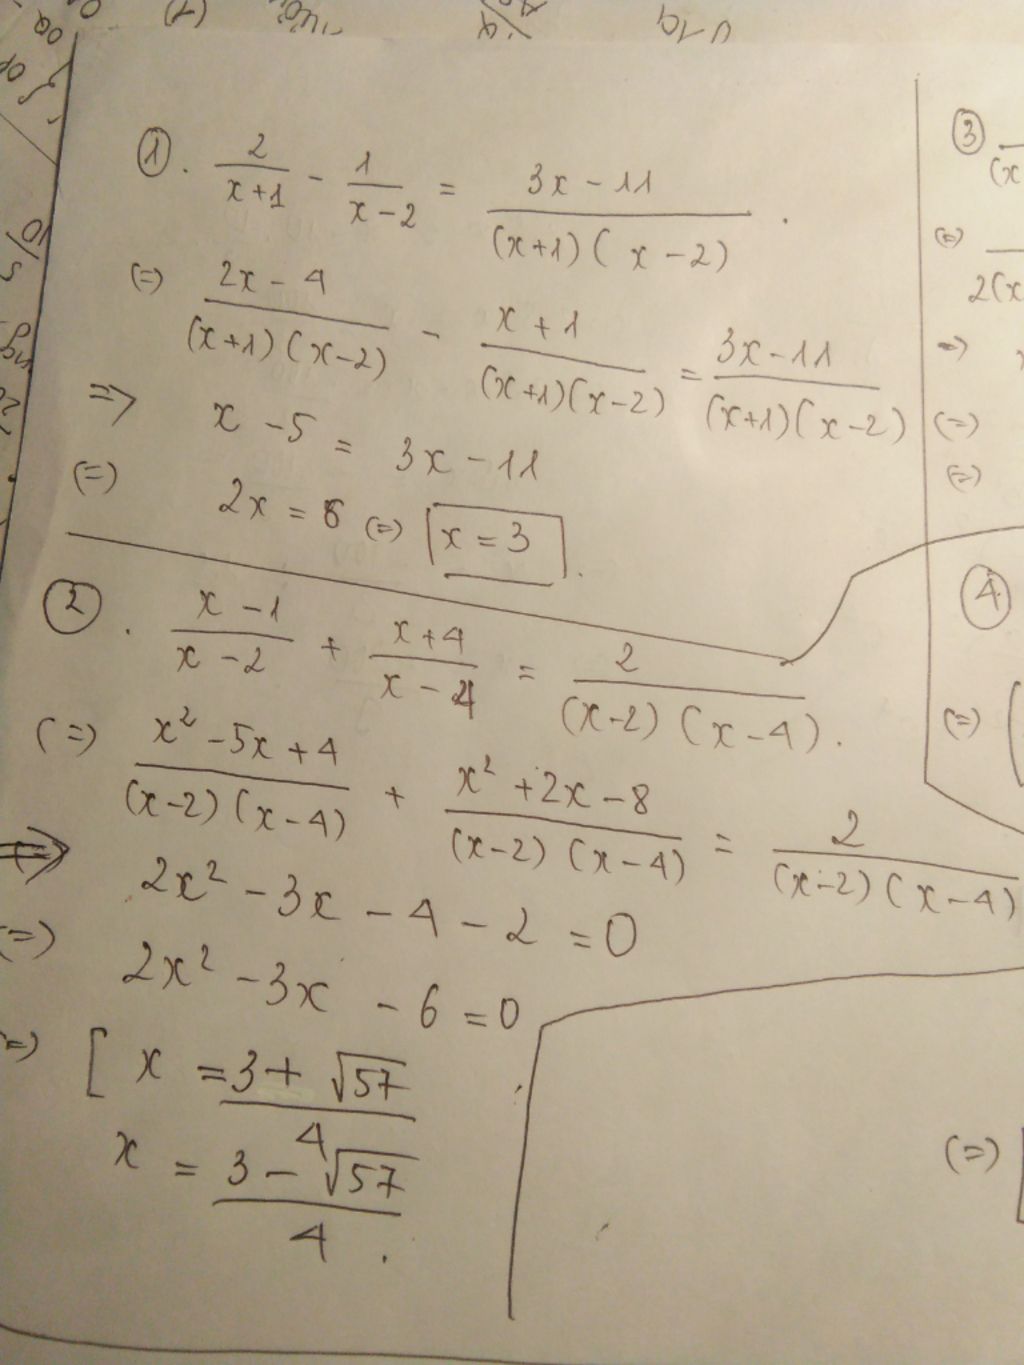 ① . \frac{2}{x+1} - \frac{1}{x-2} = \frac{3x-11}{(x+1)(x-2)} .
(=) \frac{2x-4}{(x+1)(x-2)} - \frac{x+1}{(x+1)(x-2)} = \frac{3x-11}{(x+1)(x-2)}
=> x - 5 = 3x - 11
(=) 2x = 6 (=) x = 3 .
② . \frac{x-1}{x-2} + \frac{x+4}{x-4} = \frac{2}{(x-2)(x-4)} .
(=) \frac{x^2-5x+4}{(x-2)(x-4)} + \frac{x^2+2x-8}{(x-2)(x-4)} = \frac{2}{(x-2)(x-4)}
=> 2x^2 - 3x - 4 - 2 = 0
(=) 2x^2 - 3x - 6 = 0
(=) [ x = \frac{3+\sqrt{57}}{4}
x = \frac{3-\sqrt{57}}{4} .
③
(x
(=)
2(x
=>
(=)
(=)
④
(=) (
(=) [